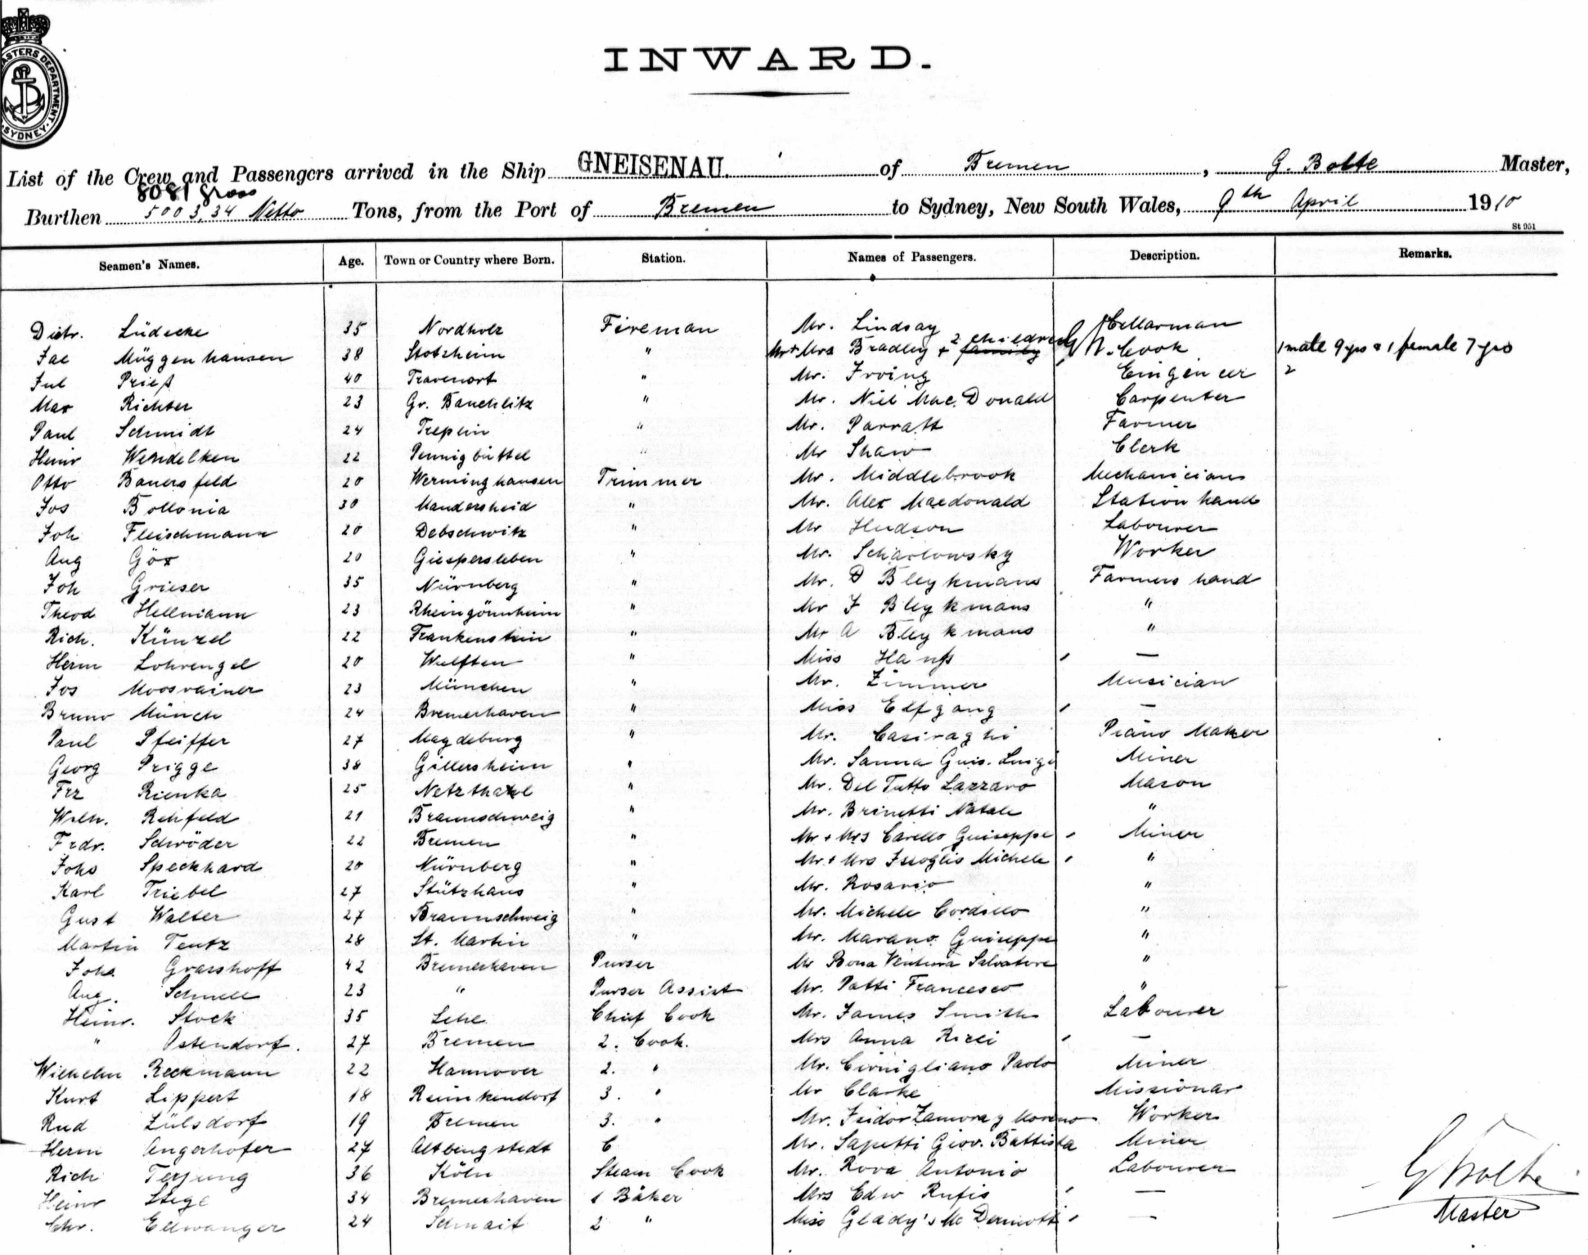 MASTERS DEPARTMENT
SYDNEY
INWARD.
List of the Crew and Passengers arrived in the Ship GNEISENAU. of Bremen, G. Bolte Master,
8081 gross
Burthen 5003,34 Netto Tons, from the Port of Bremen to Sydney, New South Wales, 9th April 1910
St 951
Seamen's Names. Age. Town or Country where Born. Station. Names of Passengers. Description. Remarks.
Dietr. Lüdecke 35 Nordholz Fireman Mr. Lindsay Cellarman
Jac Müggenhausen 38 Stotzheim " Mr + Mrs Bradley + family 2 children Cook 1 male 9 yrs & 1 female 7 yrs
Jul 40 Travenort " Mr. Irving 2
Max Richter 23 Gr. Bauchlitz " Mr. Niel Mac. Donald Carpenter
Paul Schmidt 24 Treplin " Mr. Parratt Farmer
Heinr Wendelken 22 Pennigbüttel " Mr Shaw Clerk
Otto Bauersfeld 20 Werminghausen Trimmer Mr. Middlebrook Mechanician
Jos Bollonia 30 Manderscheid " Mr. Alex Macdonald Station hand
Joh Fleischmann 20 Debschwitz " Mr Hudson Labourer
Aug Göx 20 Giespersleben " Mr. Scharlowsky Worker
Joh Grieser 35 Nürnberg " Mr. D Bleykmans Farmers hand
Theod Hellmann 23 Rheingönnheim " Mr J Bleykmans "
Rich. Künzel 22 Frankenstein " Mr A Bleykmans "
Herm Lohrengel 20 Wulften " Miss —
Jos Moosrainer 23 München " Mr. Zimmer Musician
Bruno Münch 24 Bremerhaven " Miss Elfgang —
Paul Pfeiffer 27 Magdeburg " Mr. Casiraghi Piano Maker
Georg Prigge 38 Gillersheim " Mr. Sanna Guis. Luigi Miner
Frz Rienka 25 " Mr. Del Tutto Lazzaro Mason
Wilh. Rehfeld 21 Braunschweig " Mr. Brinetti Natale "
Frdr. Schröder 22 Bremen " Mr + Mrs Carello Guiseppe Miner
Johs Speckhard 20 Nürnberg " Mr. + Mrs Michele "
Karl Triebel 27 Stützhaus " Mr. Rosario "
Gust Walter 27 Braunschweig " Mr. Michele Cordello "
Martin Teutz 28 St. Martin " Mr. Marano Guiseppe "
Johs Grasshoff 42 Bremerhaven Purser Mr Bona Ventura Salvatore "
Aug. Schnell 23 " Purser Assist Mr. Patti Francesco "
Heinr. Stock 35 Lehe Chief Cook Mr. James Smith Labourer
" Ostendorf. 27 Bremen 2. Cook. Mrs Anna Rizei —
Wilhelm Reckmann 22 Hannover 2. " Mr. Cirnigliano Paolo Miner
Kurt Lippert 18 Reinikendorf 3. " Mr Clarke Missionar
Rud Lülsdorf 19 Bremen 3. " Mr. Isidor Zamora y Moreno Worker
Herm Angerhofer 27 Altbingstedt 6 Mr. Sapetti Giov. Battista Miner
Rich Terjung 36 Köln Steam Cook Mr. Rova Antonio Labourer
Heinr Stege 34 Bremerhaven 1 Bäker Mrs Edw Rufis —
Chr. Ellwanger 24 Schnait 2 " Miss Glady's Mc Dermott —
G Bolte
Master